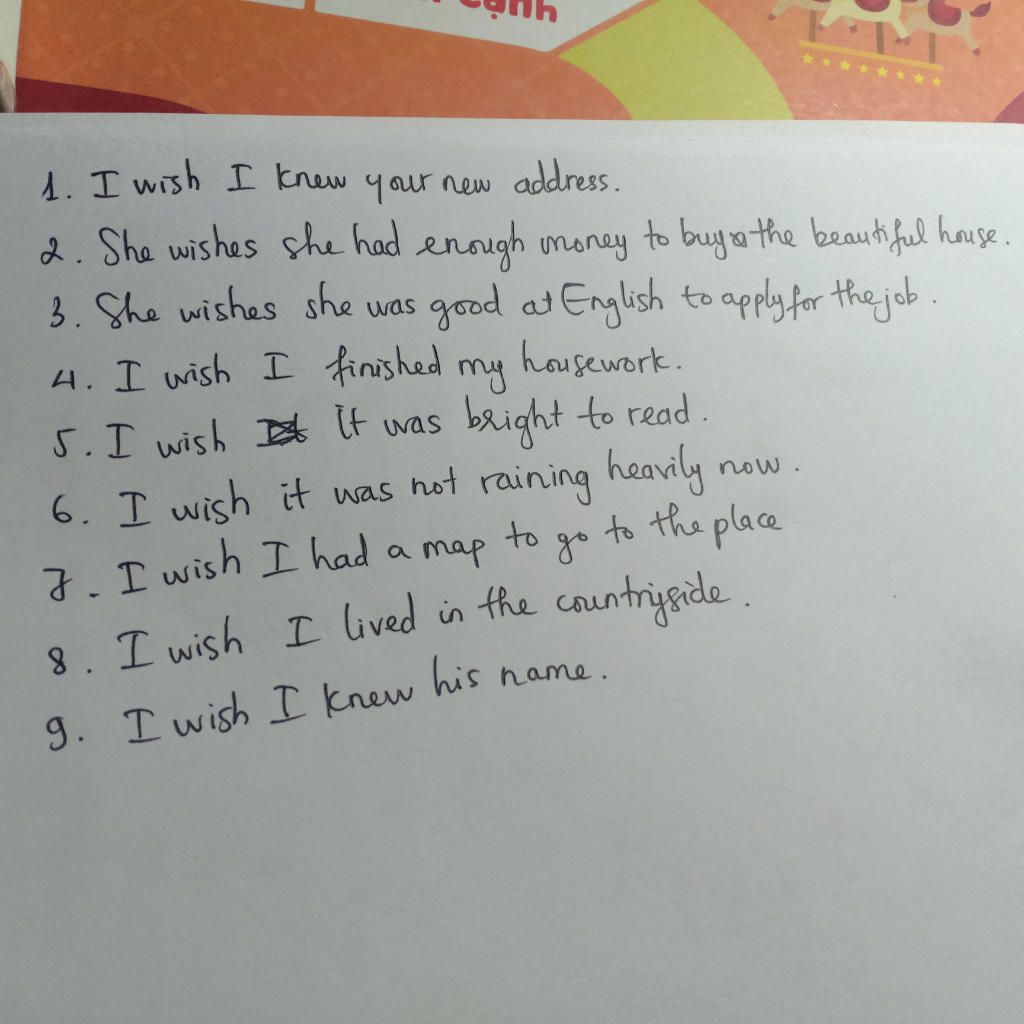 cạnh
1. I wish I knew your new address.
2. She wishes she had enough money to buy the beautiful house.
3. She wishes she was good at English to apply for the job.
4. I wish I finished my housework.
5. I wish it was bright to read.
6. I wish it was not raining heavily now.
7. I wish I had a map to go to the place
8. I wish I lived in the countryside.
9. I wish I knew his name.